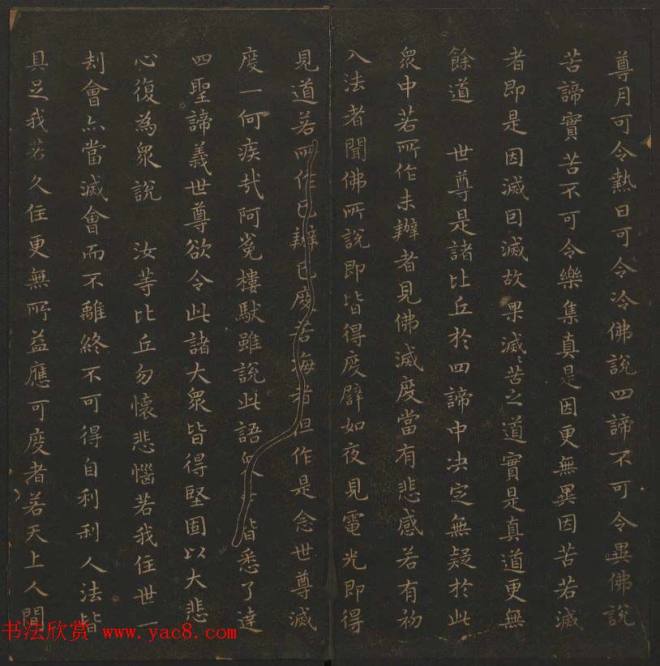 尊月可令熱日可令冷佛說四諦不可令異佛說
苦諦實苦不可令樂集真是因更無異因苦若滅
者即是因滅因滅故果滅苦之道實是真道更無
餘道 世尊是諸比丘於四諦中決定無疑於此
眾中若所作未辦者見佛滅度當有悲感若有初
入法者聞佛所說即皆得度譬如夜見電光即得
見道若所作已辦已度苦海者但作是念世尊滅
度一何疾哉阿㝹樓馱雖說此語眾皆悉了達
四聖諦義世尊欲令此諸大眾皆得堅固以大悲
心復為眾說 汝等比丘勿懷悲惱若我住世一
劫會亦當滅會而不離終不可得自利利人法皆
具足我若久住更無所益應可度者若天上人間
书法欣赏 www.yac8.com